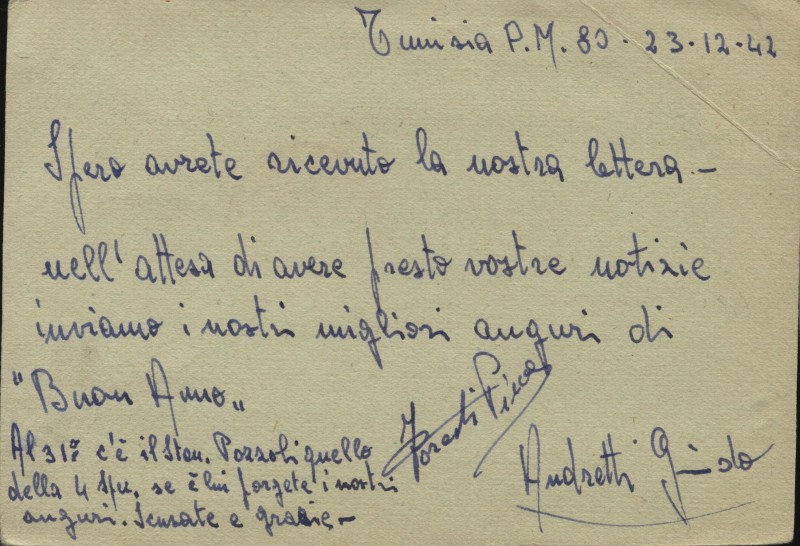 Tunisia P.M. 80 - 23-12-42
Spero avrete ricevuto la nostra lettera -
nell'attesa di avere presto vostre notizie
inviamo i nostri migliori auguri di
"Buon Anno"
Al 31º c'è il Sten. Pozzoli quello
della 4 Spe. se è lui porgete i nostri
auguri. Scusate e grazie -
Andretti Guido